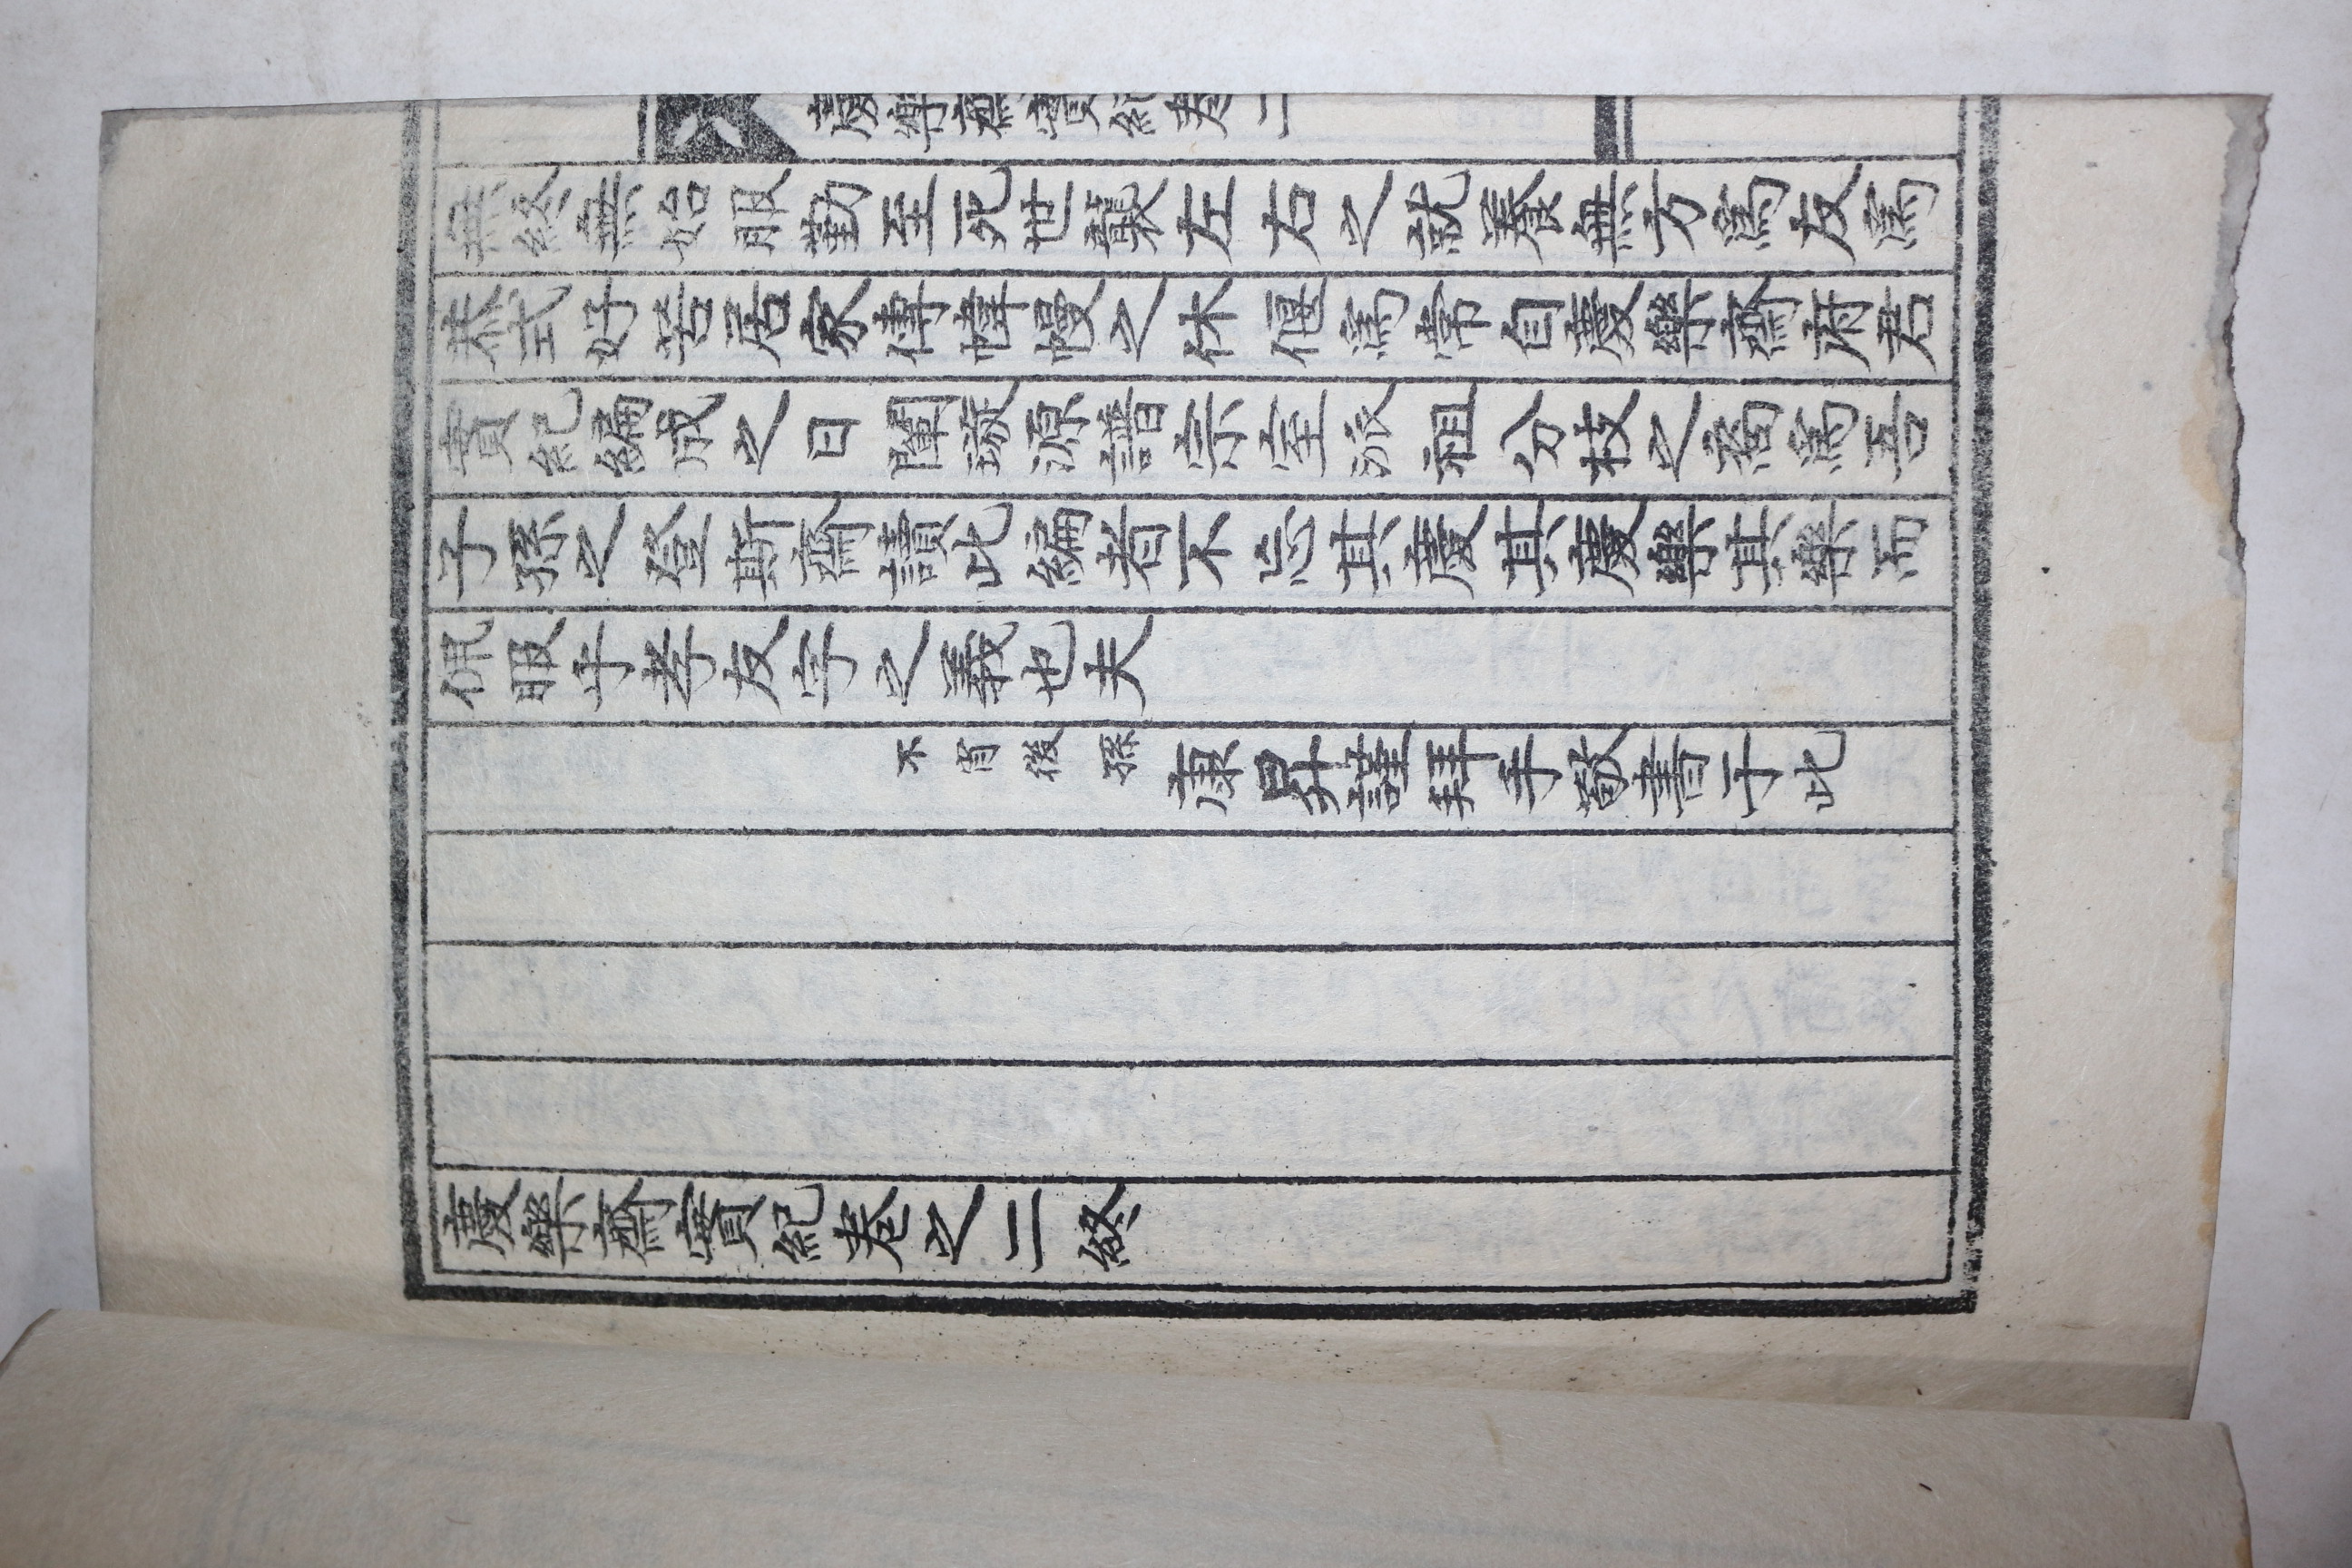 慶樂齋實紀卷二
無終無始服勤至死世襲左右之就養無方焉友焉
柰式好若居家偉韡韡之休偃焉常自慶樂齋府君
實紀編成之日閣璿源譜宗室派祖分枝之裔焉吾
子孫之登斯齋讀此編者不忘其慶其慶樂其樂而
佩服乎孝友字之義也夫
不肖後孫康昇謹拜手敬書于此
慶樂齋實紀卷之二終